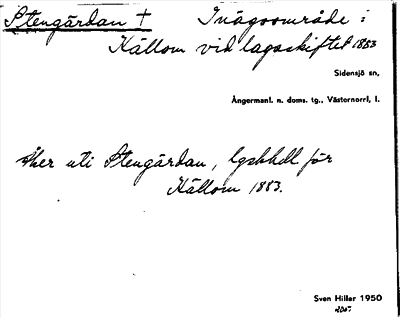 Stengårdan † Inägoområde i
Källom vid lagaskiftet 1883
Sidensjö sn,
Ångermanl. n. doms. tg., Västernorrl, l.
Åker uti Stengårdan, lgskhdl för
Källom 1883.
Sven Hiller 1950